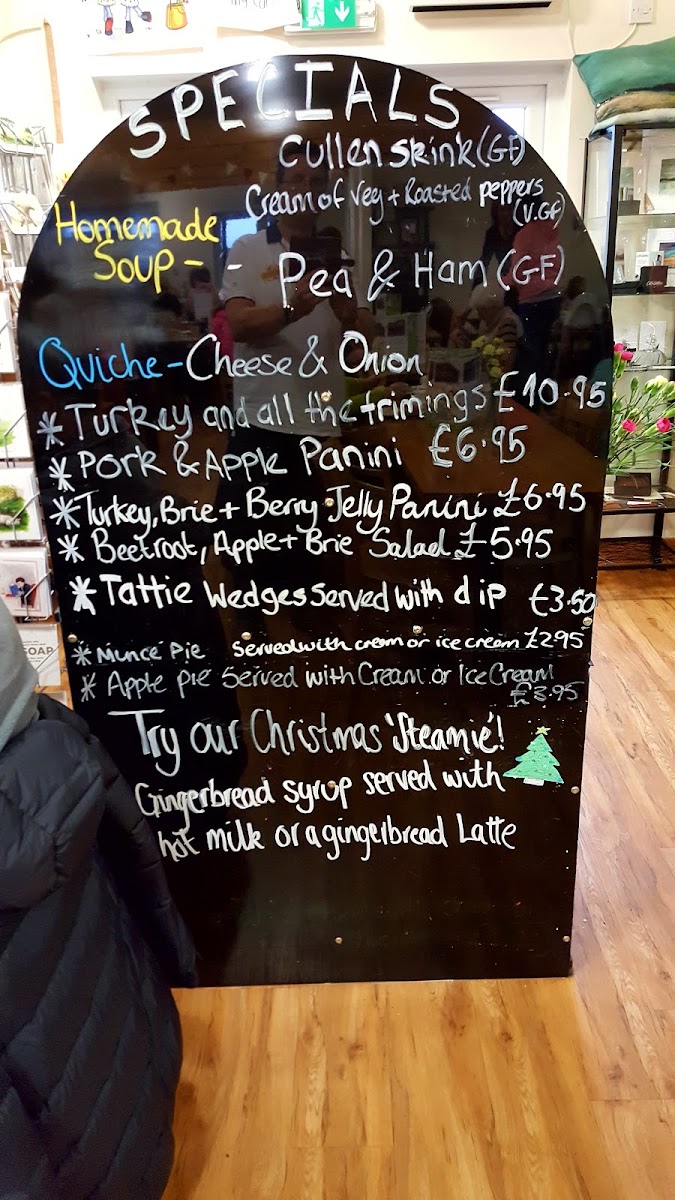 SPECIALS
Cullen Skink (GF)
Cream of Veg + Roasted peppers
(V.GF)
Homemade
Soup - -
Pea & Ham (GF)
Quiche - Cheese & Onion
* Turkey and all the trimings £10.95
* Pork & Apple Panini £6.95
* Turkey, Brie + Berry Jelly Panini £6.95
* Beetroot, Apple + Brie Salad £5.95
* Tattie Wedges Served with dip £3.50
* Munce Pie Served with cream or ice cream £2.95
* Apple pie Served with Cream or Ice Cream
£3.95
Try our Christmas 'Steamie'!
Gingerbread syrup served with
hot milk or a gingerbread Latte
SOAP